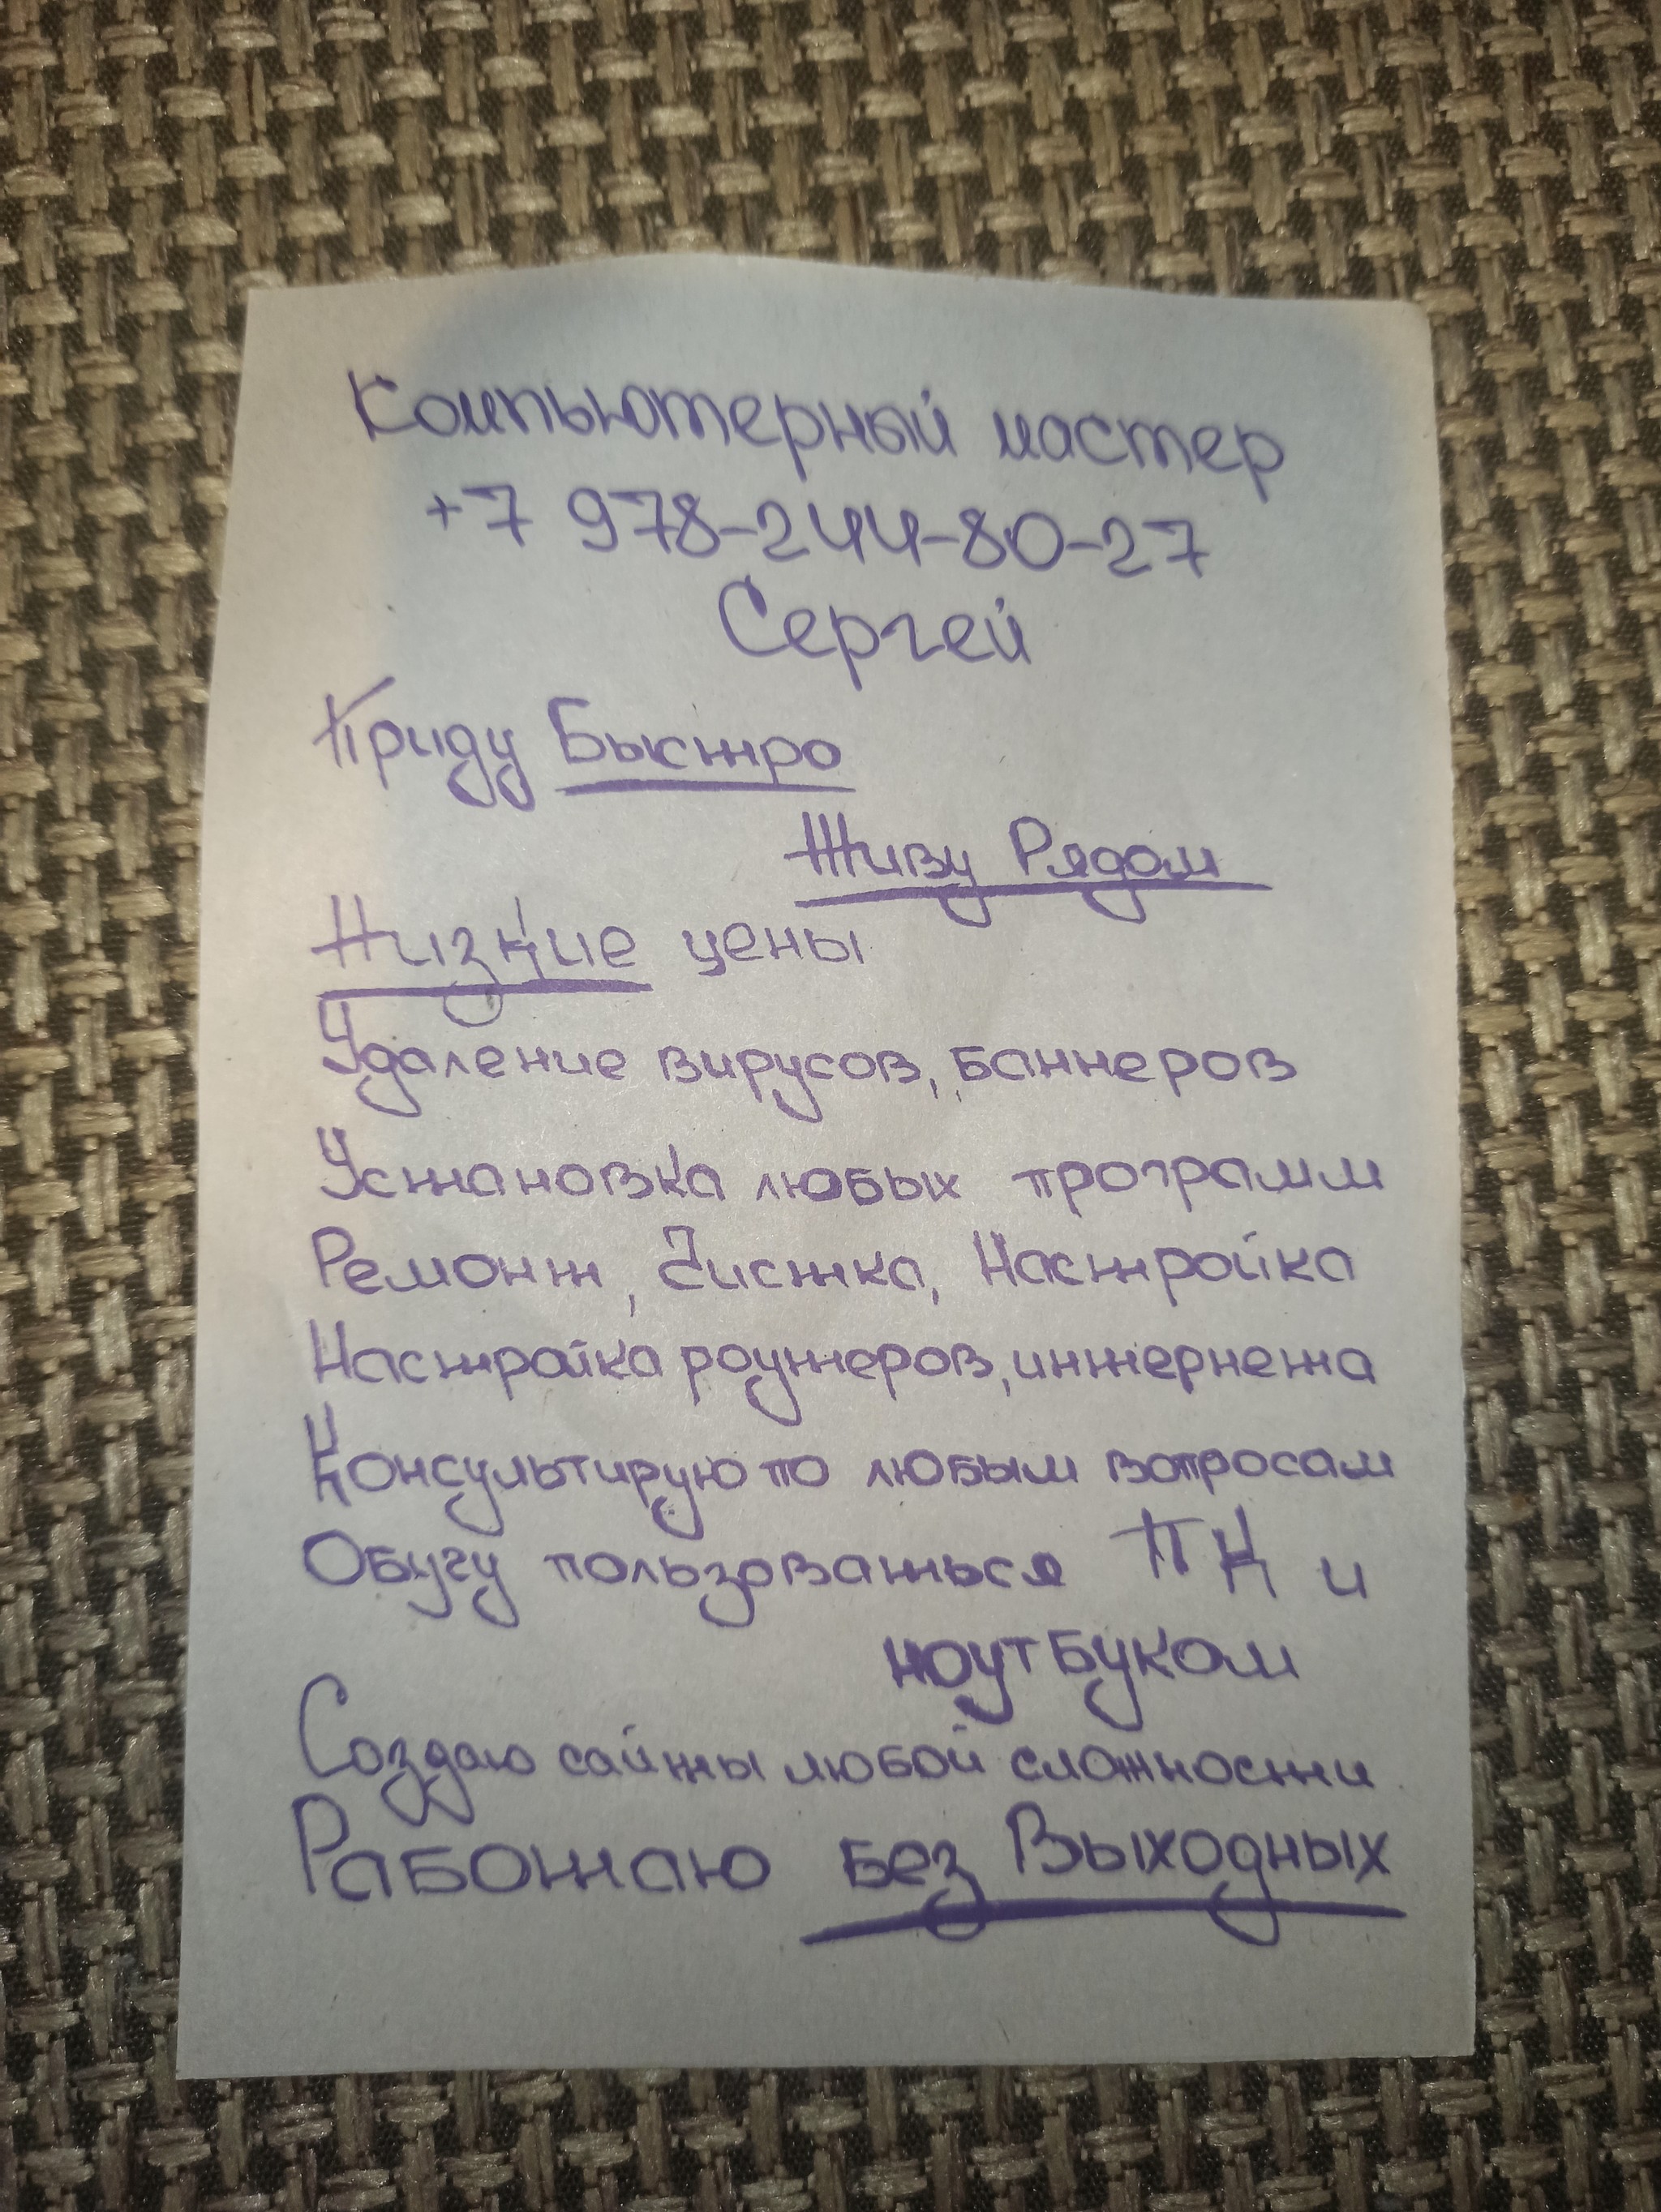 Компьютерный мастер
+7 978-244-80-27
Сергей
Приду Быстро
Живу Рядом
Низкие цены
Удаление вирусов, баннеров
Установка любых программ
Ремонт, Чистка, Настройка
Настройка роутеров, интернета
Консультирую по любым вопросам
Обучу пользоваться ПК и
ноутбуком
Создаю сайты любой сложности
Работаю без Выходных